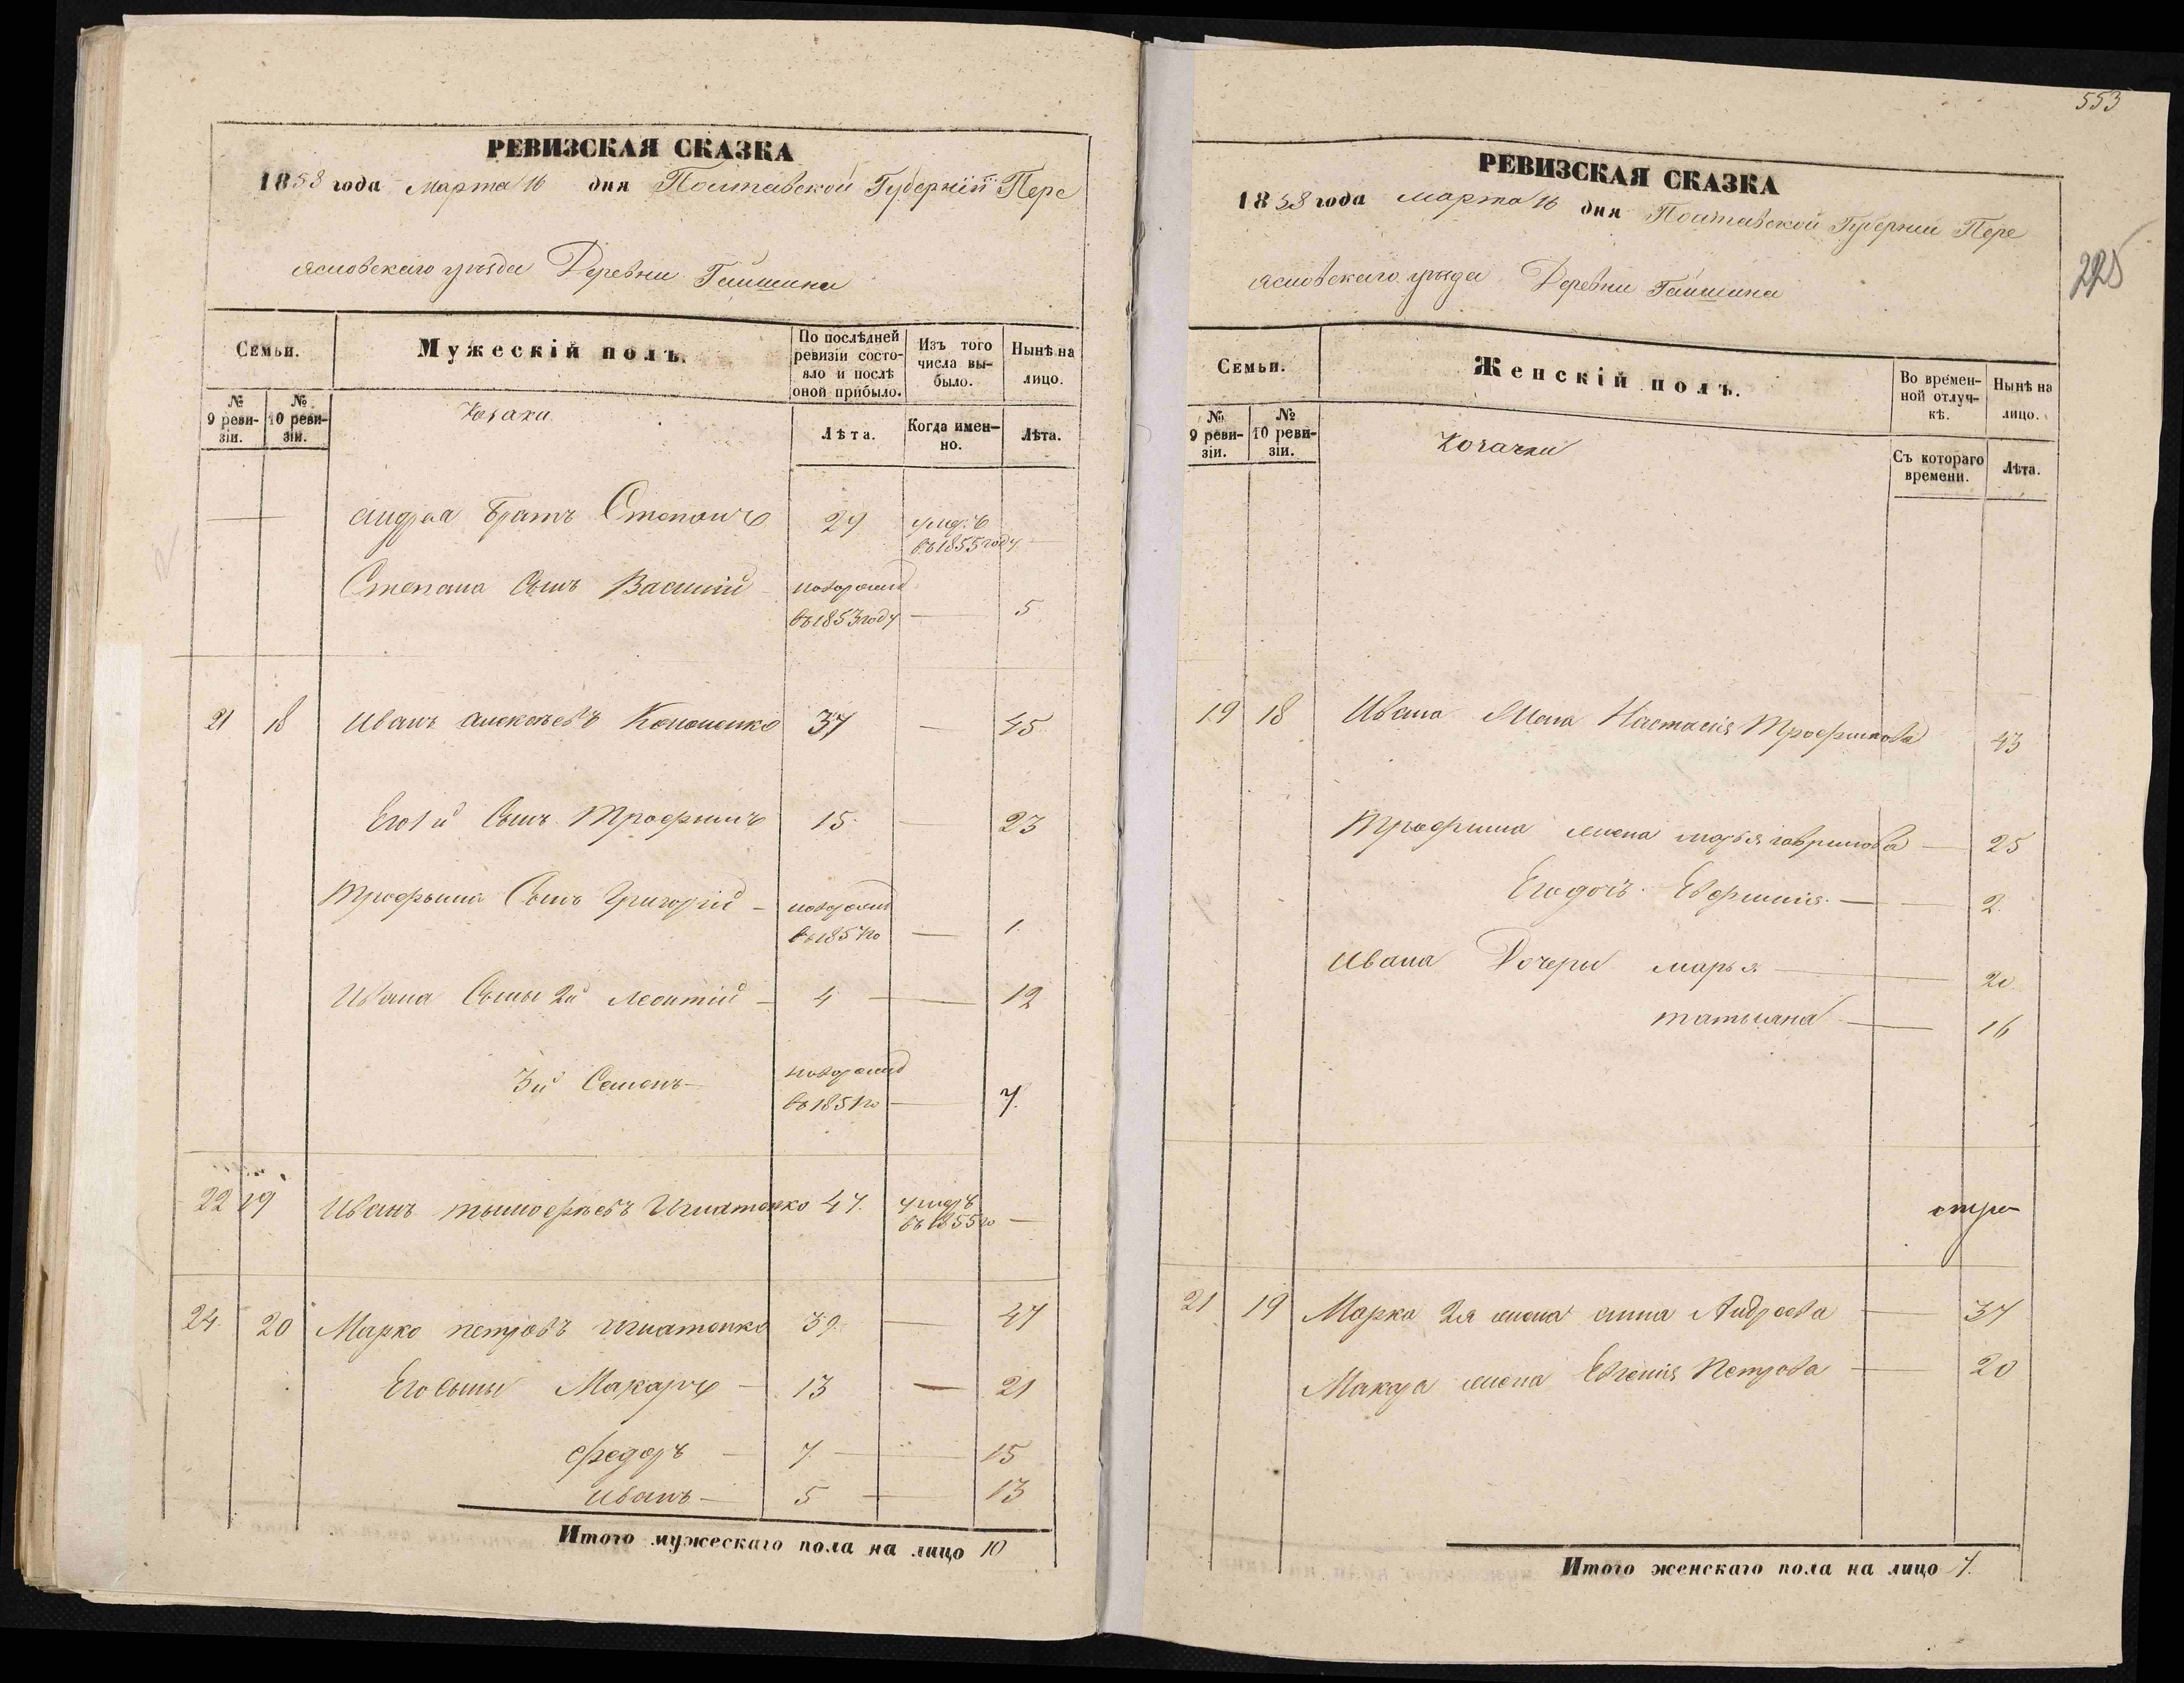 РЕВИЗСКАЯ СКАЗКА
1858 года Марта 16 дня Полтавской Губерніи Пере
яславскаго уѣзда Деревни Гайшина
Семьи.
Мужескій полъ.
По послѣдней ревизіи состояло и послѣ оной прибыло.
Изъ того числа выбыло.
Нынѣ на лицо.
№ 9 ревизіи.
№ 10 ревизіи.
Козаки
Лѣта.
Когда именно.
Лѣта.
Андрея Братъ Степанъ 29 умеръ въ 1855 году —
Степана Сынъ Василій новорожд въ 1853 году — 5
21 18 Иванъ Алексѣевъ Кононенко 37 — 45
Его 1й Сынъ Трофимъ 15 — 23
Трофыма Сынъ Григорій — новорожд въ 1857 го — 1
Ивана Сыны 2й Леонтій — 4 — 12
3й Семенъ — новорожд въ 1851 го — 7.
22 19 Иванъ тымофѣевъ Игнатенко 47. умеръ въ 1855 го —
24 20 Марко петровъ игнатенко 39. — 47
Его сыны Макаръ — 13 — 21
Федоръ — 7 — 15
Иванъ — 5 — 13
Итого мужескаго пола на лицо 10
553
225
РЕВИЗСКАЯ СКАЗКА
1858 года Марта 16 дня Полтавской Губерніи Пере
яславскаго уѣзда Деревни Гайшина
Семьи.
Женскій полъ.
Во временной отлучкѣ.
Нынѣ на лицо.
№ 9 ревизіи.
№ 10 ревизіи.
Козачки
Съ котораго времени.
Лѣта.
19 18 Ивана Жена Настасія Трофимова 43
Трофима жена марья гаврилова — 25
Его дочь Евфимія — 2
Ивана Дочери марья — 20
татьяна — 16
21 19 Марка 2я жена анна Андреева — 37
Макара жена Евгенія Петрова — 20
Итого женскаго пола на лицо 7.